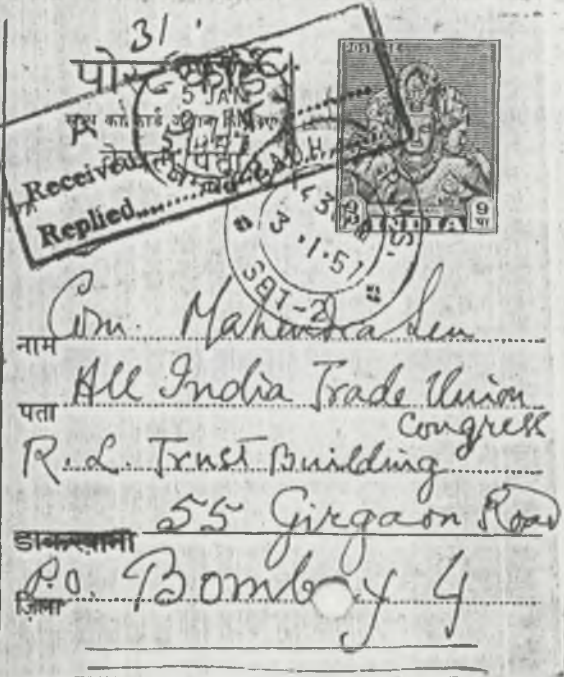 31.
पोस्ट कार्ड
5 JAN
Received
Replied
POSTAGE
9 INDIA 9
4.30PM
3.1.51
SBT-2
नाम Com. Mahendra Sen
पता All India Trade Union
Congress
R. L. Trust Building
55 Girgaon Road
डाकखाना
P.O. Bombay 4
ज़िला